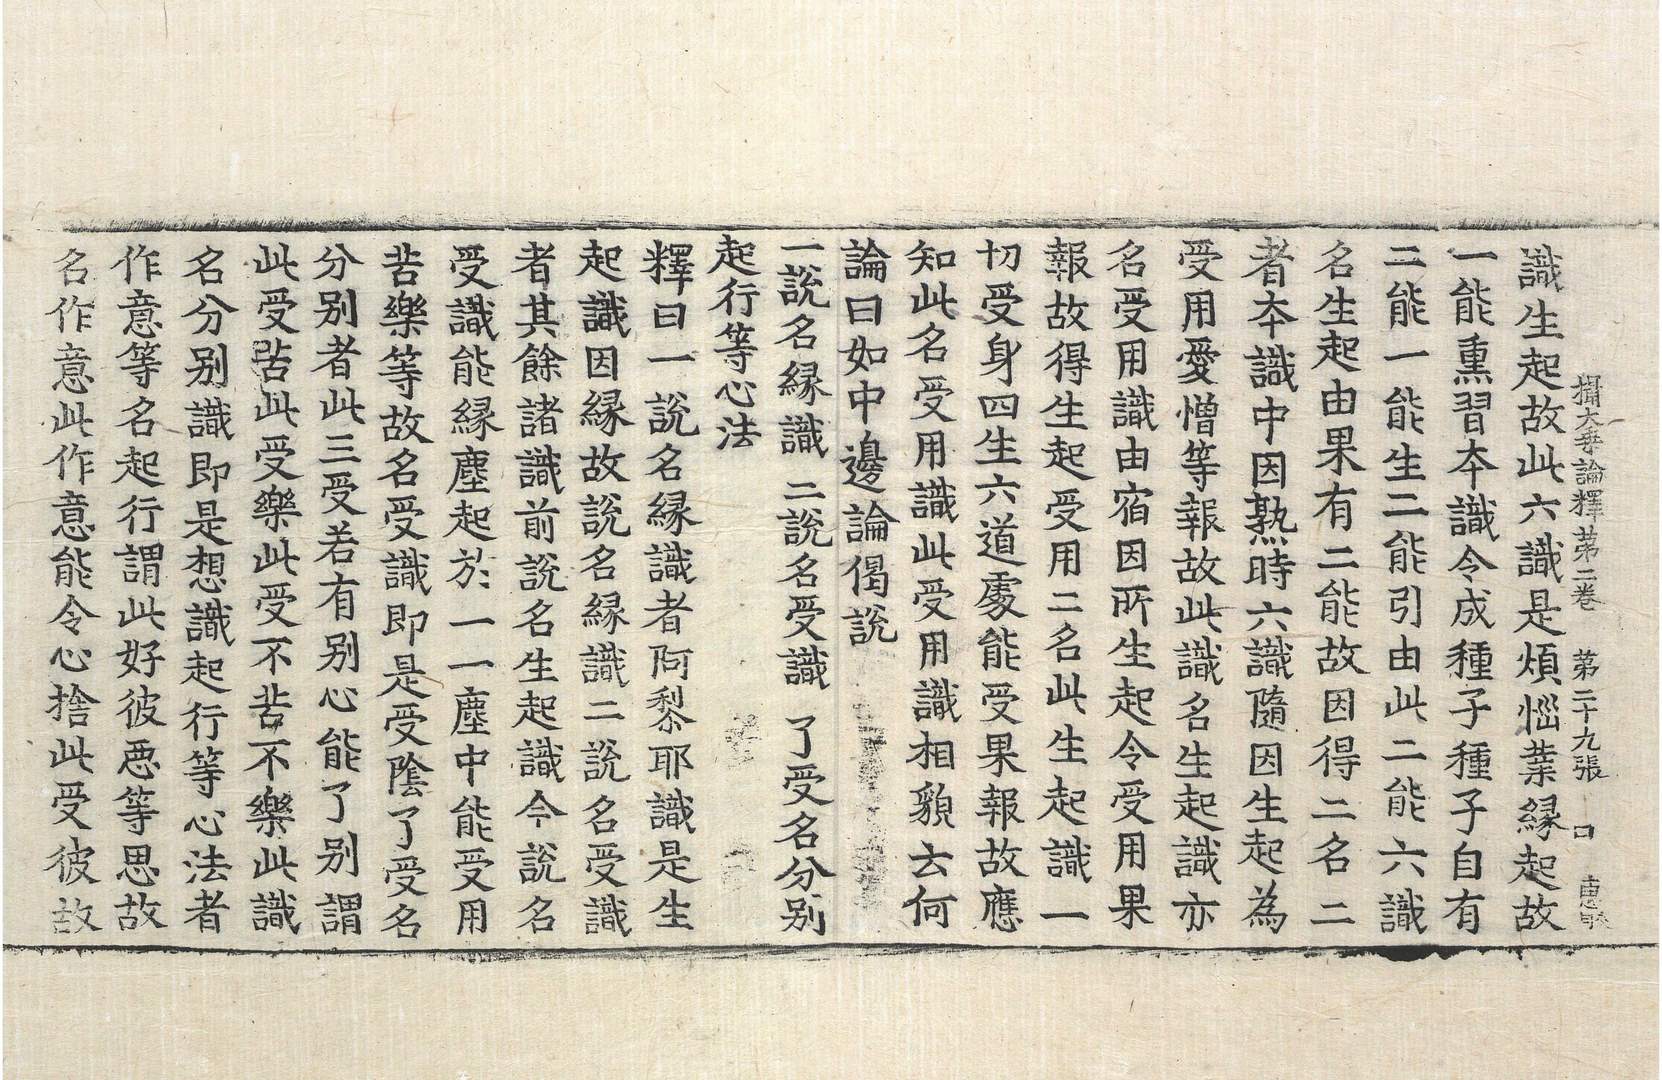 攝大乗論釋苐二卷 第二十九張 口
識生起故此六識是煩惱業縁起故
一能熏習夲識令成種子種子自有
二能一能生二能引由此二能六識
名生起由果有二能故因得二名二
者夲識中因熟時六識隨因生起為
受用愛憎等報故此識名生起識亦
名受用識由宿因所生起令受用果
報故得生起受用二名此生起識一
切受身四生六道處能受果報故應
知此名受用識此受用識相貌云何
論曰如中邊論偈說
一說名縁識 二說名受識 了受名分别
起行等心法
釋曰一說名縁識者阿黎耶識是生
起識因縁故說名縁識二說名受識
者其餘諸識前說名生起識今說名
受識能縁塵起於一一塵中能受用
苦樂等故名受識即是受陰了受名
分别者此三受若有别心能了别謂
此受苦此受樂此受不苦不樂此識
名分别識即是想識起行等心法者
作意等名起行謂此好彼惡等思故
名作意此作意能令心捨此受彼故